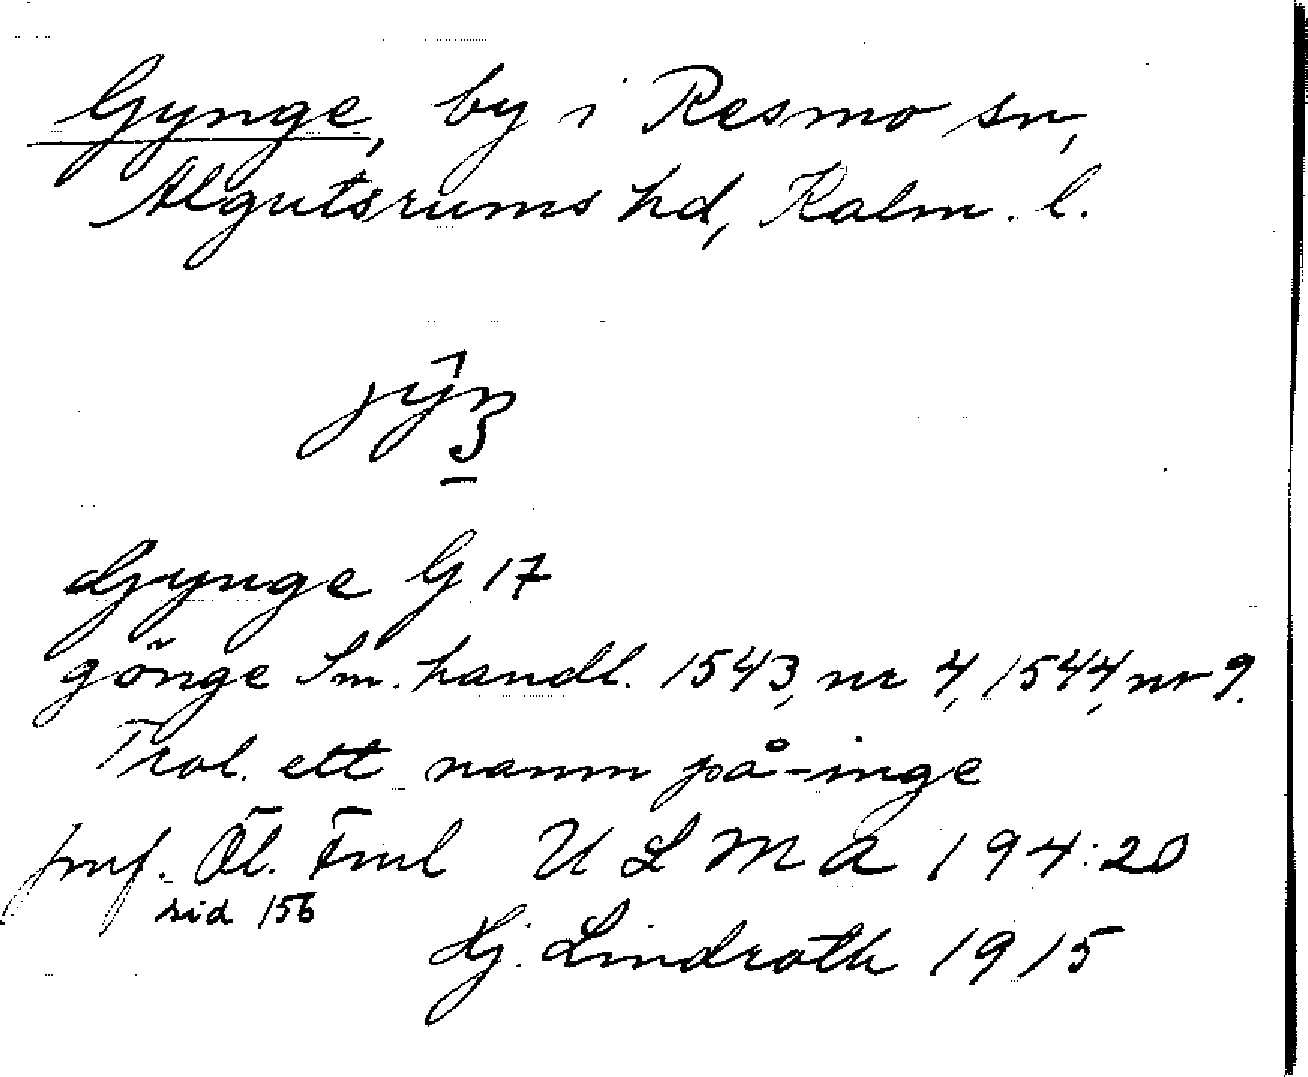 Gynge, by i Resmo sn,
Algutsrums hd, Kalm. l.
Gynge G 17
gönge Sm. handl. 1543, nr 4, 1544, nr 9.
Trol. ett namn på -inge
jmf. Öl. Fml ULMA 194:20
sid 156
Hj. Lindroth 1915